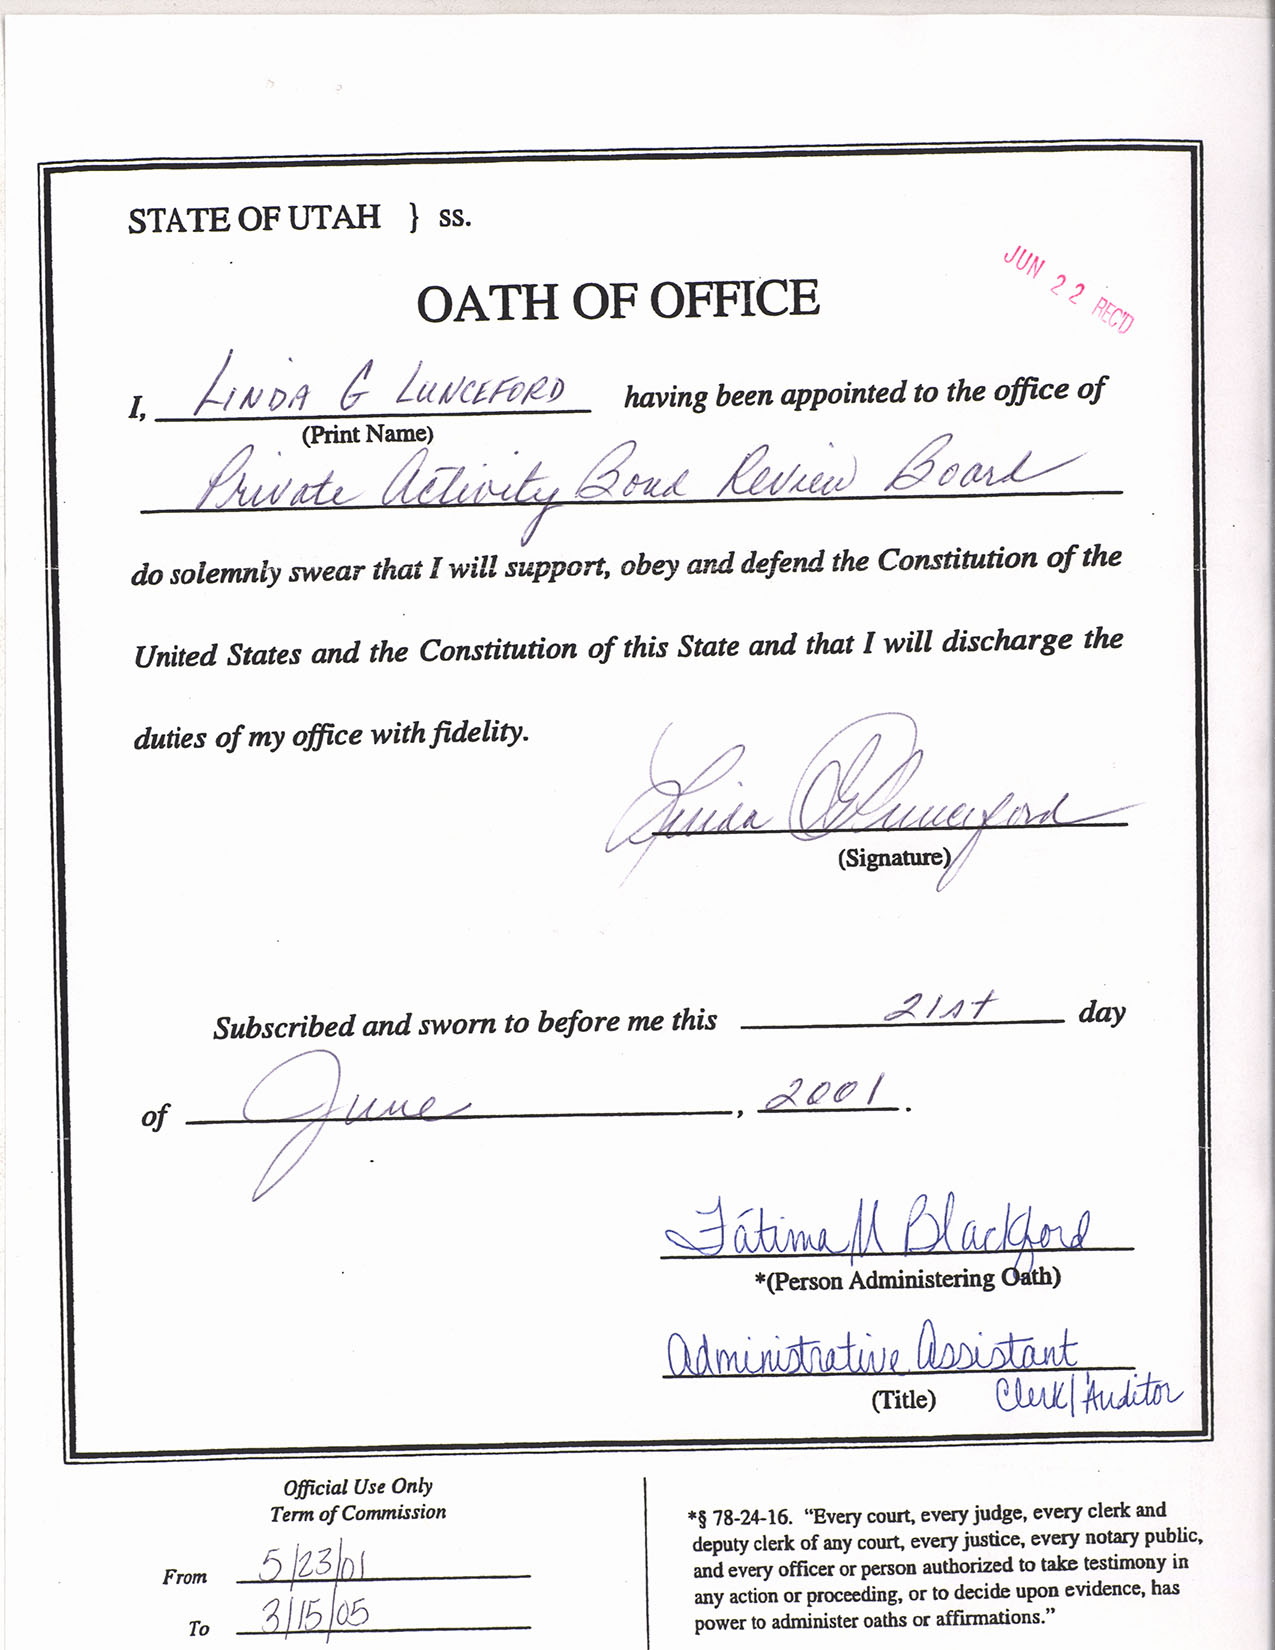 STATE OF UTAH } ss.
JUN 22 REC'D
OATH OF OFFICE
I, LINDA G LUNCEFORD having been appointed to the office of
(Print Name)
Private Activity Bond Review Board
do solemnly swear that I will support, obey and defend the Constitution of the
United States and the Constitution of this State and that I will discharge the
duties of my office with fidelity.
Linda G Lunceford
(Signature)
Subscribed and sworn to before me this 21st day
of June, 2001.
Fátima M Blackford
*(Person Administering Oath)
Administrative Assistant
(Title) Clerk/Auditor
Official Use Only
Term of Commission
From 5/23/01
To 3/15/05
*§ 78-24-16. “Every court, every judge, every clerk and
deputy clerk of any court, every justice, every notary public,
and every officer or person authorized to take testimony in
any action or proceeding, or to decide upon evidence, has
power to administer oaths or affirmations.”